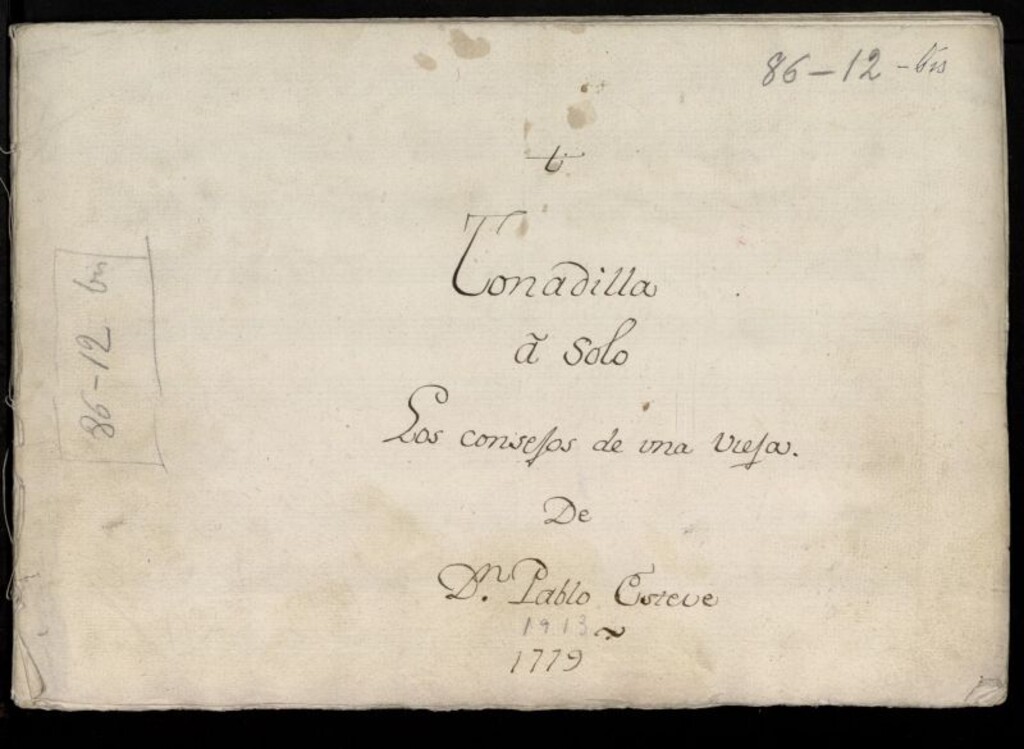 86-12-bis
t
Tonadilla
â solo
Los consejos de una Vieja.
De
D.n Pablo Esteve
1913
1779
86-12 bis